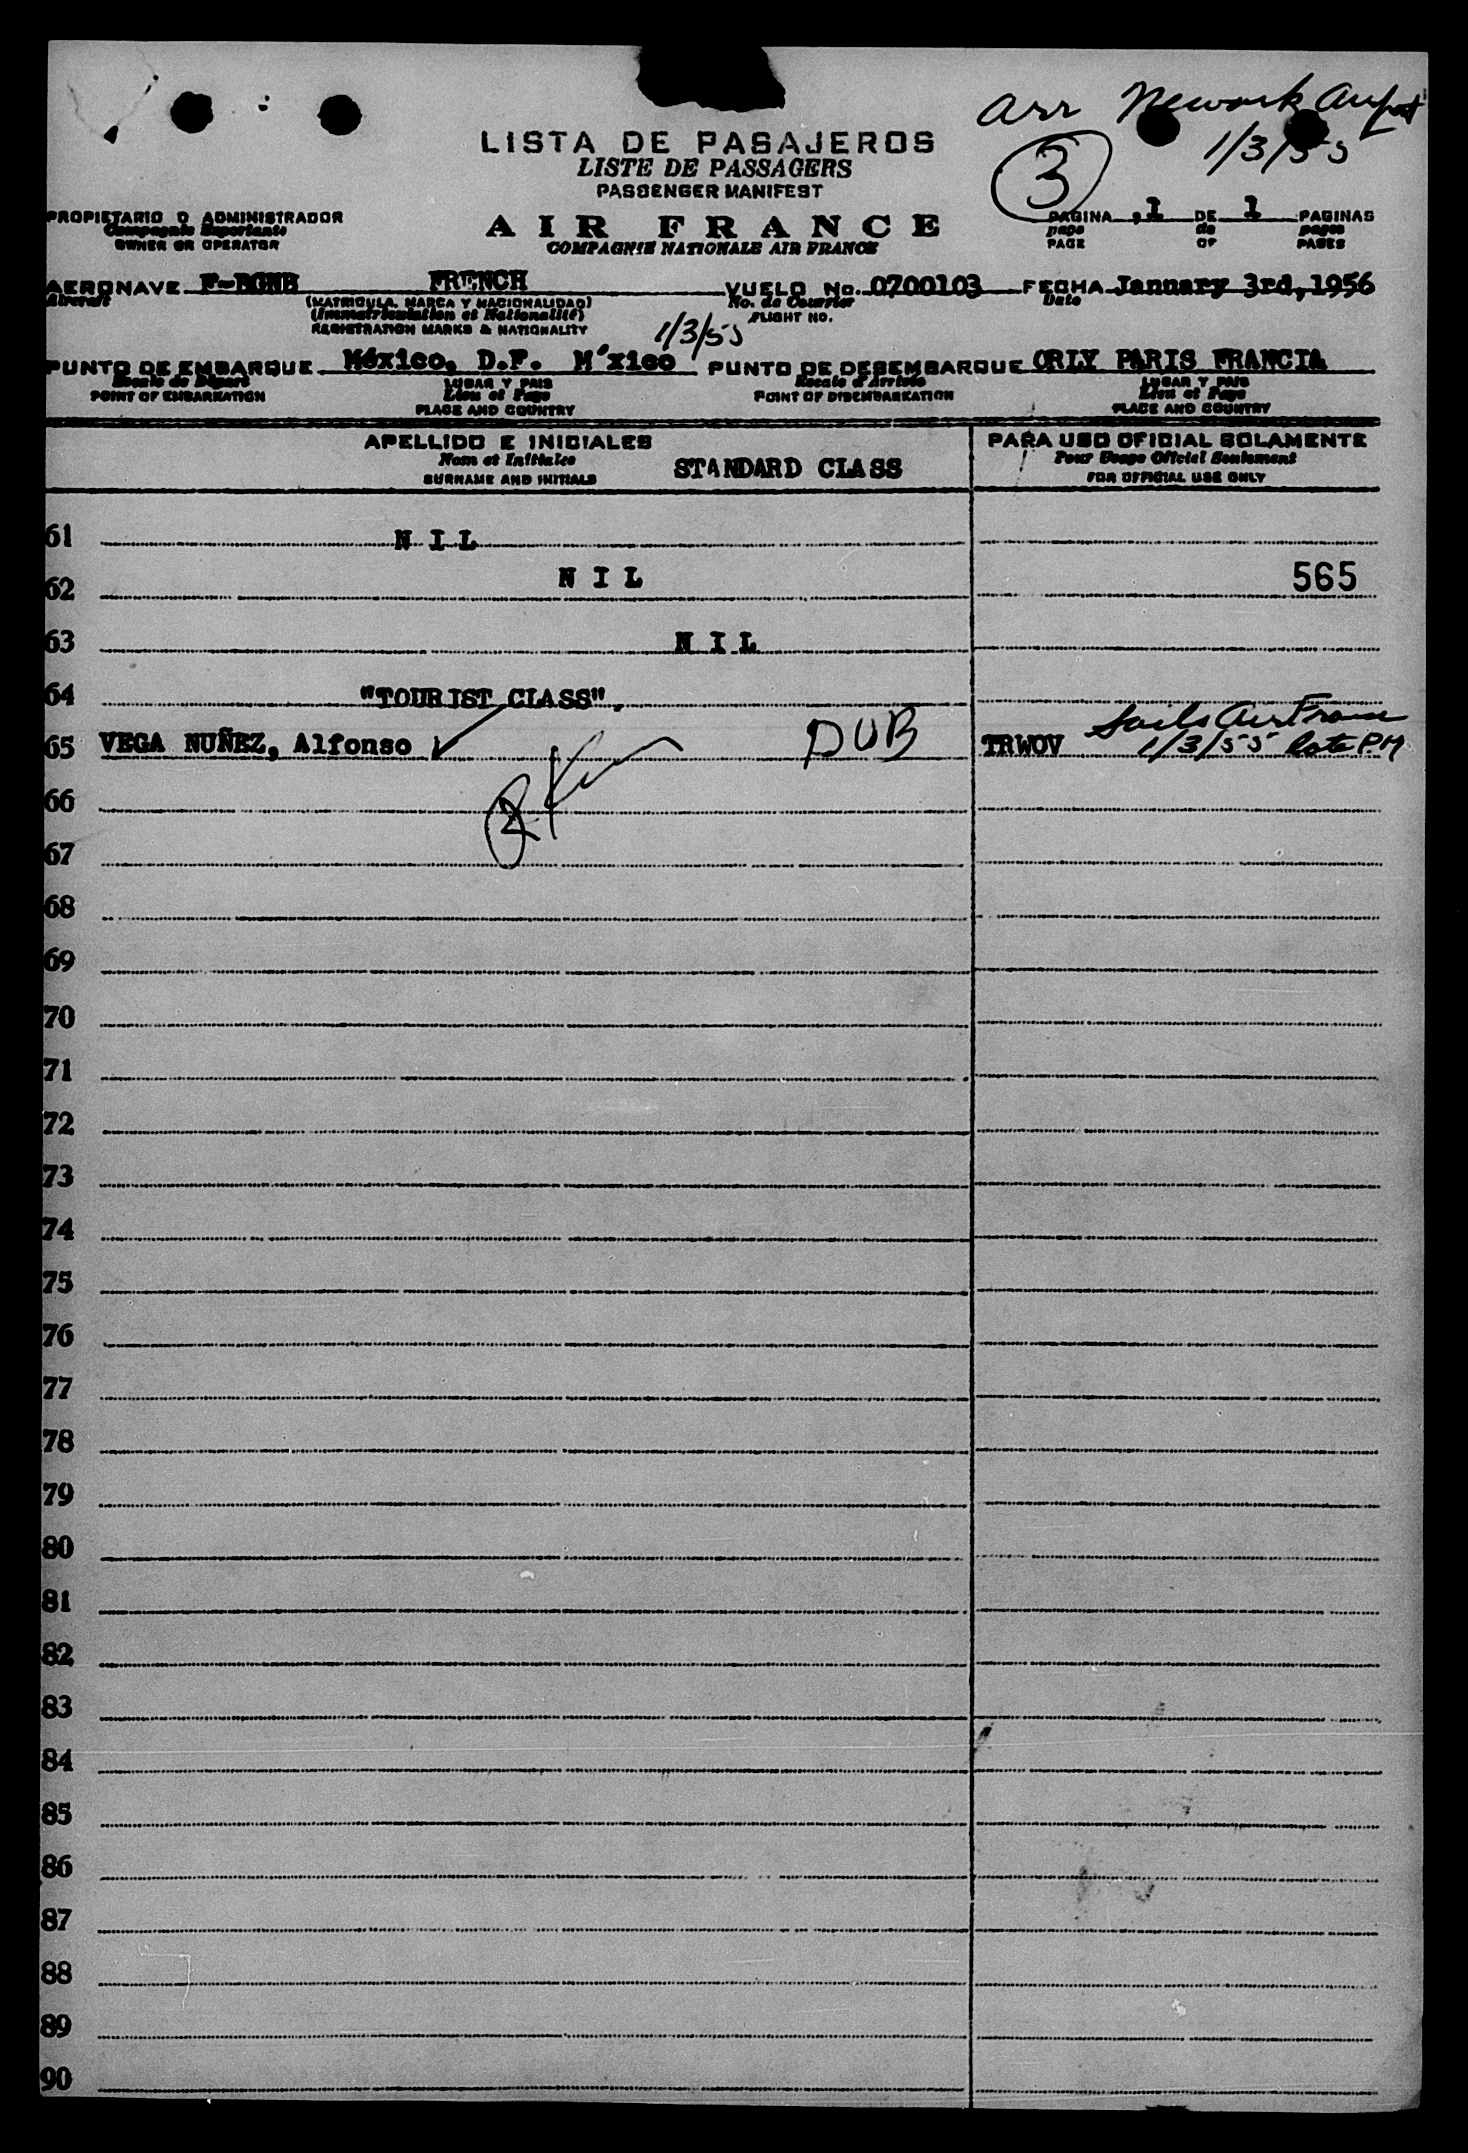 Arr Newark Airport
1/3/55
3
LISTA DE PASAJEROS
LISTE DE PASSAGERS
PASSENGER MANIFEST
PROPIETARIO O ADMINISTRADOR
Compagnie Exportante
OWNER OR OPERATOR
AIR FRANCE
COMPAGNIE NATIONALE AIR FRANCE
PAGINA 1 DE 1 PAGINAS
page de pages
PAGE OF PAGES
AERONAVE F-BGNB FRENCH VUELO No. 0700103 FECHA January 3rd, 1956
Aircraft (MATRICULA, MARCA Y NACIONALIDAD) No. de Courrier Date
(Immatriculation et Nationalité) FLIGHT NO.
REGISTRATION MARKS & NATIONALITY
1/3/55
PUNTO DE EMBARQUE México, D.F. M´xico PUNTO DE DESEMBARQUE ORLY PARIS FRANCIA
Escale de Départ LUGAR Y PAIS Escale d'Arrivée LUGAR Y PAIS
POINT OF EMBARKATION Lieu et Pays POINT OF DISEMBARKATION Lieu et Pays
PLACE AND COUNTRY PLACE AND COUNTRY
APELLIDO E INICIALES PARA USO OFICIAL SOLAMENTE
Nom et Initiales STANDARD CLASS Pour Usage Officiel Seulement
SURNAME AND INITIALS FOR OFFICIAL USE ONLY
61 N I L
62 N I L 565
63 N I L
64 "TOURIST CLASS".
65 VEGA NUÑEZ, Alfonso DUB TRWOV Sails Air France
1/3/55 late P.M
66
67
68
69
70
71
72
73
74
75
76
77
78
79
80
81
82
83
84
85
86
87
88
89
90